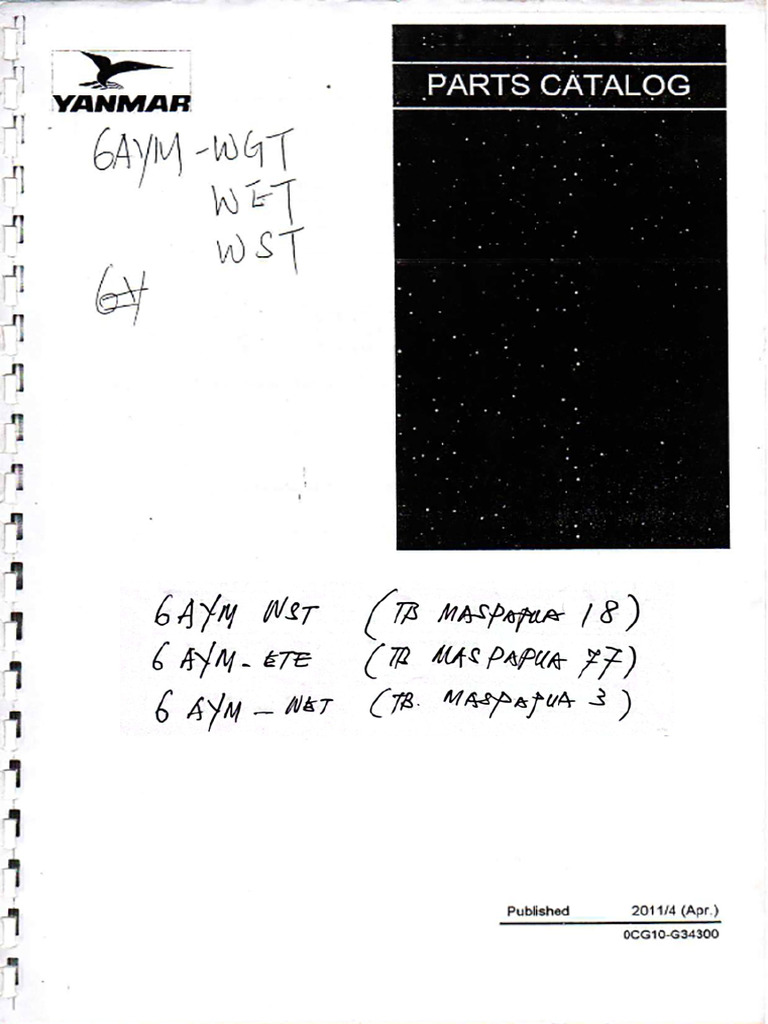 YANMAR
PARTS CATALOG
6AYM-WGT
WET
WST
6Y
6 AYM WST (TB MASPAPUA 18)
6 AYM-ETE (TB MASPAPUA 77)
6 AYM - WET (TB. MASPAPUA 3)
Published 2011/4 (Apr.)
0CG10-G34300